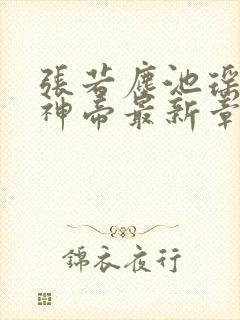 張若塵池瑤
神帝最新章
錦衣夜行